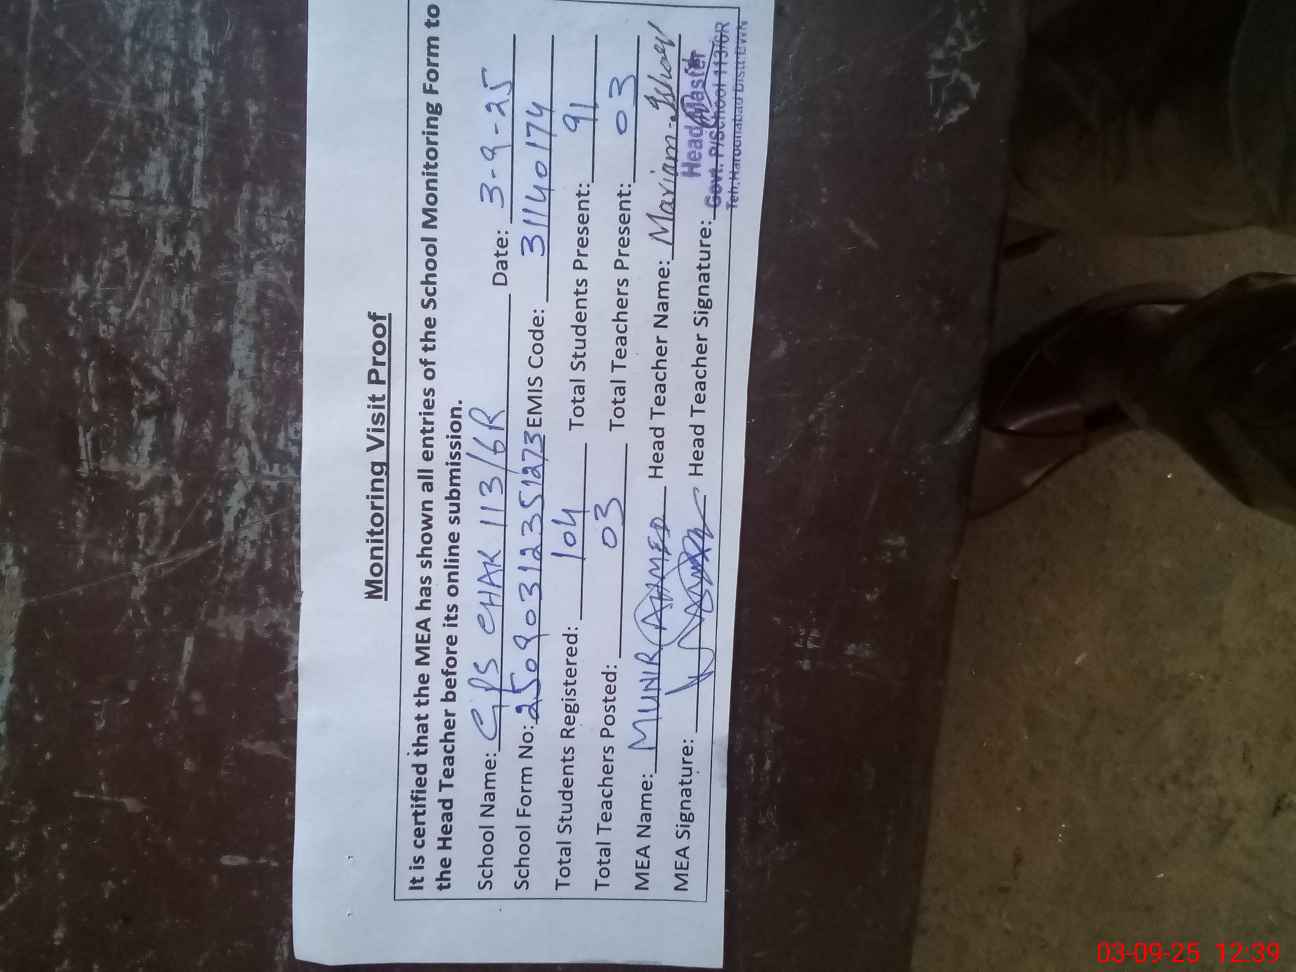 Monitoring Visit Proof
It is certified that the MEA has shown all entries of the School Monitoring Form to
the Head Teacher before its online submission.
School Name: GPS CHAK 113/6R Date: 3-9-25
School Form No: 25090312351273 EMIS Code: 31140174
Total Students Registered: 104 Total Students Present: 91
Total Teachers Posted: 03 Total Teachers Present: 03
MEA Name: MUNIR AHMED Head Teacher Name: Mariam
MEA Signature: Head Teacher Signature:
Head Master
Govt. P/School 113/6R
Teh. Haroonabad Distt: BWN
03-09-25 12:39